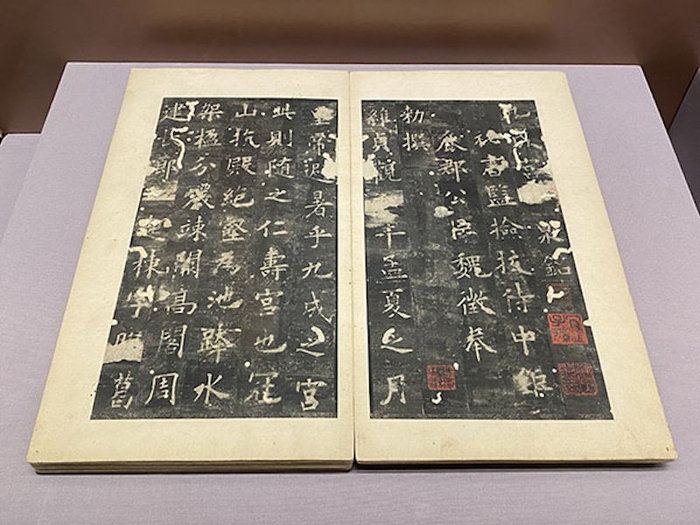 九成宮泉銘
秘書監檢校侍中鉅
鹿郡公臣魏徵奉
勅撰
維貞觀年孟夏之月
皇帝避暑乎九成之宮
此則隨之仁壽宮也冠
山抗殿絕壑為池跨水
架楹分巖竦闕高閣周
建廊起棟宇膠葛